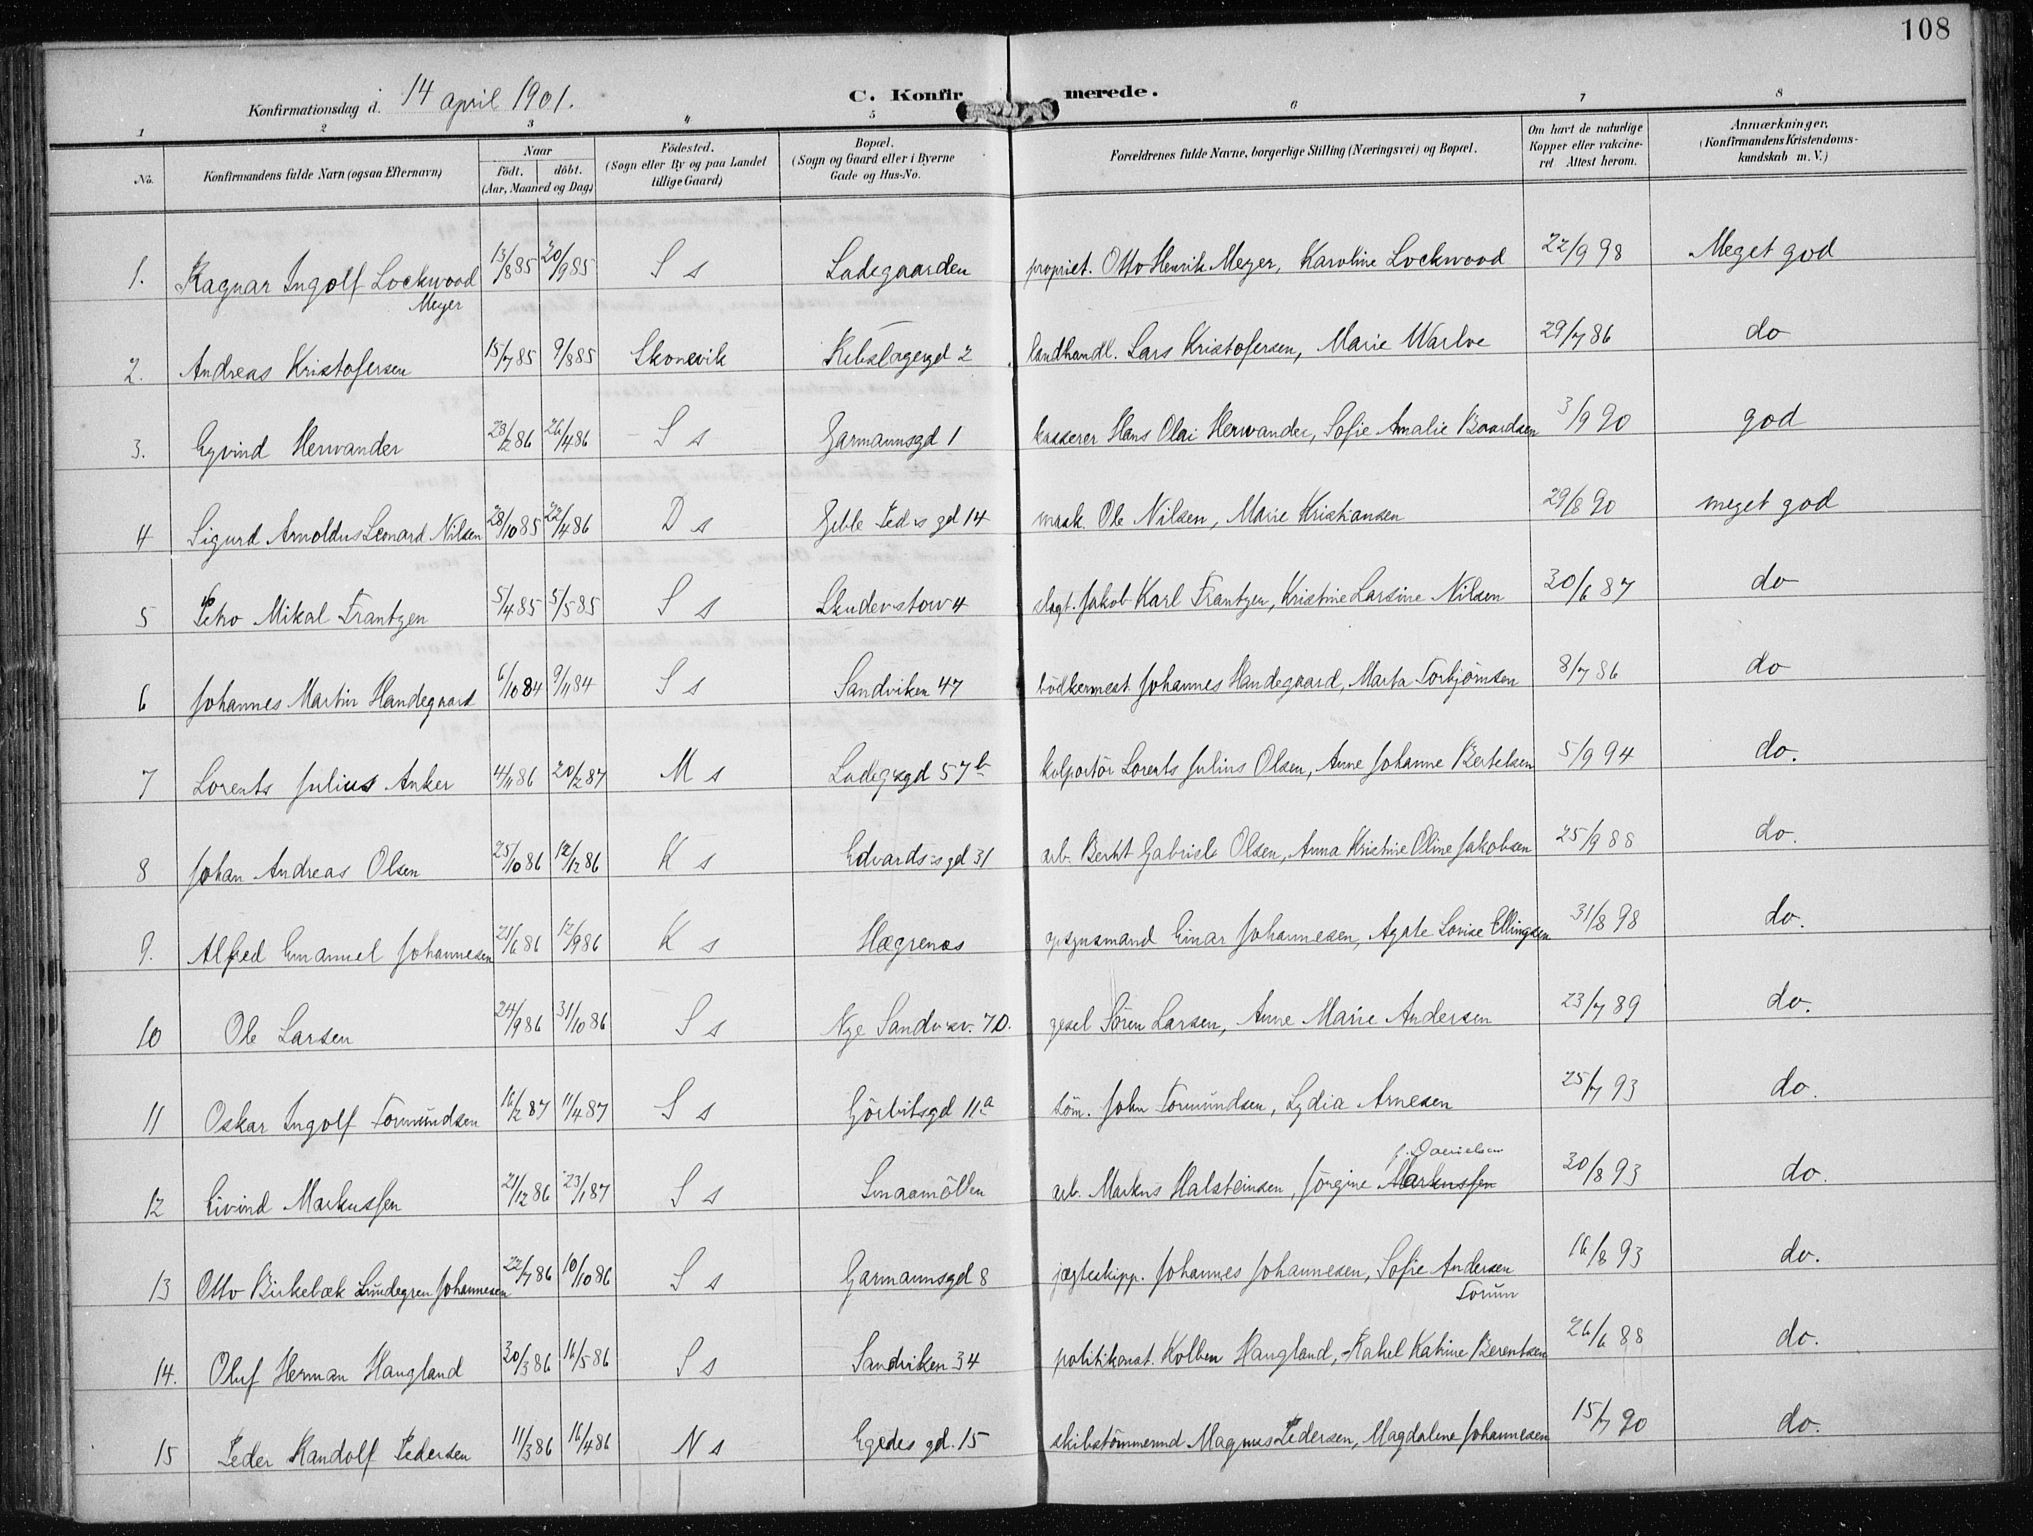 108
Konfirmationsdag d. 14 april 1901. C. Konfirmerede.
1 2 3 4 5 6 7 8
No. Konfirmandens fulde Navn (ogsaa Efternavn) Naar født. døbt. (Aar, Maaned og Dag) Fødested. (Sogn eller By og paa Landet tillige Gaard) Bopæl. (Sogn og Gaard eller i Byerne Gade og Hus-No. Forældrenes fulde Navne, borgerlige Stilling (Næringsvei) og Bopæl. Om havt de naturlige Kopper eller vakcineret Attest herom. Anmærkninger. (Konfirmandens Kristendomskundskab m. V.)
1. Ragnar Ingolf Lockwood Meyer 13/8 85 20/9 85 S s Ladegaarden propriet. Otto Henrik Meyer, Karoline Lockwood 22/9 98 Meget god
2. Andreas Kristofersen 15/7 85 9/8 85 Skonevik Rebslagergd 2 landhandl. Lars Kristofersen, Marie Warloe 29/7 86 do
3. Eyvind Herwander 28/2 86 26/4 86 S s Garmannsgd 1 kasserer Hans Olai Herwander, Sofie Amalie Baardsen 3/9 90 god
4 Sigurd Arnoldus Leonard Nilsen 28/10 85 22/4 86 D s Geble Peds gd 14 mask. Ole Nilsen, Marie Kristiansen 29/8 90 meget god
5 Petro Mikal Frantzen 5/4 85 5/5 85 S s Skudevstow 4 slagt. Jakob Karl Frantzen, Kristine Larsine Nilsen 30/6 87 do
6 Johannes Martin Handegaard 6/10 84 9/11 84 S s Sandviken 47 bødkermest. Johannes Handegaard, Marta Torbjørnsen 8/7 86 do
7 Lorents Julius Anker 4/11 86 20/2 87 M s Ladegsgd 57b kolportør Lorents Julius Olsen, Anne Johanne Bertelsen 5/9 94 do.
8 Johan Andreas Olsen 25/10 86 12/12 86 K s Edvardsis gd 31 arb. Gabriel Olsen, Anna Kristine Oline Jakobsen 25/9 88 do.
9. Alfred Emanuel Johannesen 21/6 86 12/9 86 K s Hægrenes opsynsmand Einar Johannesen, Agate Lovise Ellingsen 31/8 98 do.
10 Ole Larsen 24/9 86 31/10 86 S s Nye Sandvsv. 70. gesel Søren Larsen, Anne Marie Andersen 23/7 89 do.
11 Oskar Ingolf Tormundsen 16/2 87 11/4 87 S s Gørbitsgd 11a søm. John Tormundsen, Lydia Arnesen 25/7 93 do.
12 Eivind Markussen 21/12 86 23/1 87 S s Smaamøllen arb. Markus Halsteinsen, Jørgine Markussen f. Danielsen 30/8 93 do.
13 Otto Birkebæk Lundegren Johannesen 22/7 86 10/10 86 S s Garmannsgd 8 jægteskipp. Johannes Johannesen, Sofie Andersen Torum 16/8 93 do.
14. Oluf Herman Haugland 30/3 86 16/5 86 S s Sandviken 34 politikonst. Kolben Haugland, Rakel Katrine Berentsen 26/6 88 do.
15 Peder Randolf Pedersen 11/3 86 16/4 86 N s Egedes gd. 15 skibstømmermd Magnus Pedersen, Magdalene Johannesen 15/7 90 do.